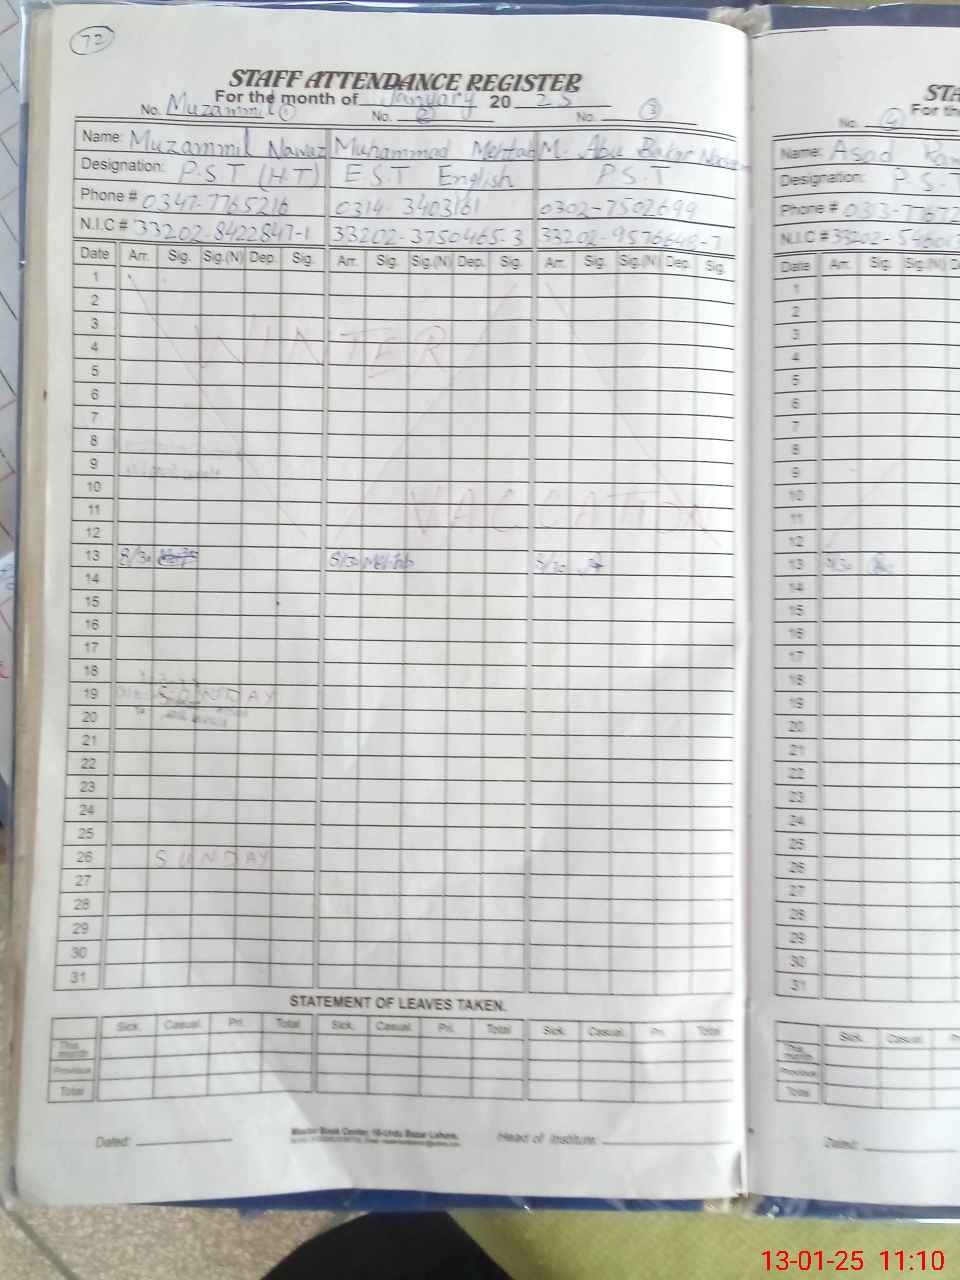 72
STAFF ATTENDANCE REGISTER
For the month of January 20 25
No. Muzammil 1 No. 2 No. 3
Name: Muzammil Nawaz Muhammad Mehtab M. Abu Bakar
Designation: P.S.T (H.T) E.S.T English P.S.T
Phone # 0347-7765216 0314-3403161 0302-7502699
N.I.C # 33202-8422847-1 33202-3750465-3 33202-9576648-7
Date Arr. Sig. Sig.(N) Dep. Sig. Arr. Sig. Sig.(N) Dep. Sig. Arr. Sig. Sig.(N) Dep. Sig.
1
2
3
WINTER
4
5
6
7
8
9
10
11
VACCATION
12
13 8/30 8/30 8/30
14
15
16
17
18
19 SUNDAY
20
21
22
23
24
25
26 SUNDAY
27
28
29
30
31
STATEMENT OF LEAVES TAKEN.
Sick. Casual. Pri. Total Sick. Casual. Pri. Total Sick. Casual. Pri. Total
This month
Previous
Total
Dated: Head of Institute:
STA
For th
No. 4
Name: Asad
Designation: P.S.T
Phone # 0313-7767
N.I.C # 33202-5460
Date Arr. Sig. Sig.(N) D
1
2
3
4
5
6
7
8
9
10
11
12
13
14
15
16
17
18
19
20
21
22
23
24
25
26
27
28
29
30
31
Sick. Casual.
This month
Previous
Total
Dated:
13-01-25 11:10